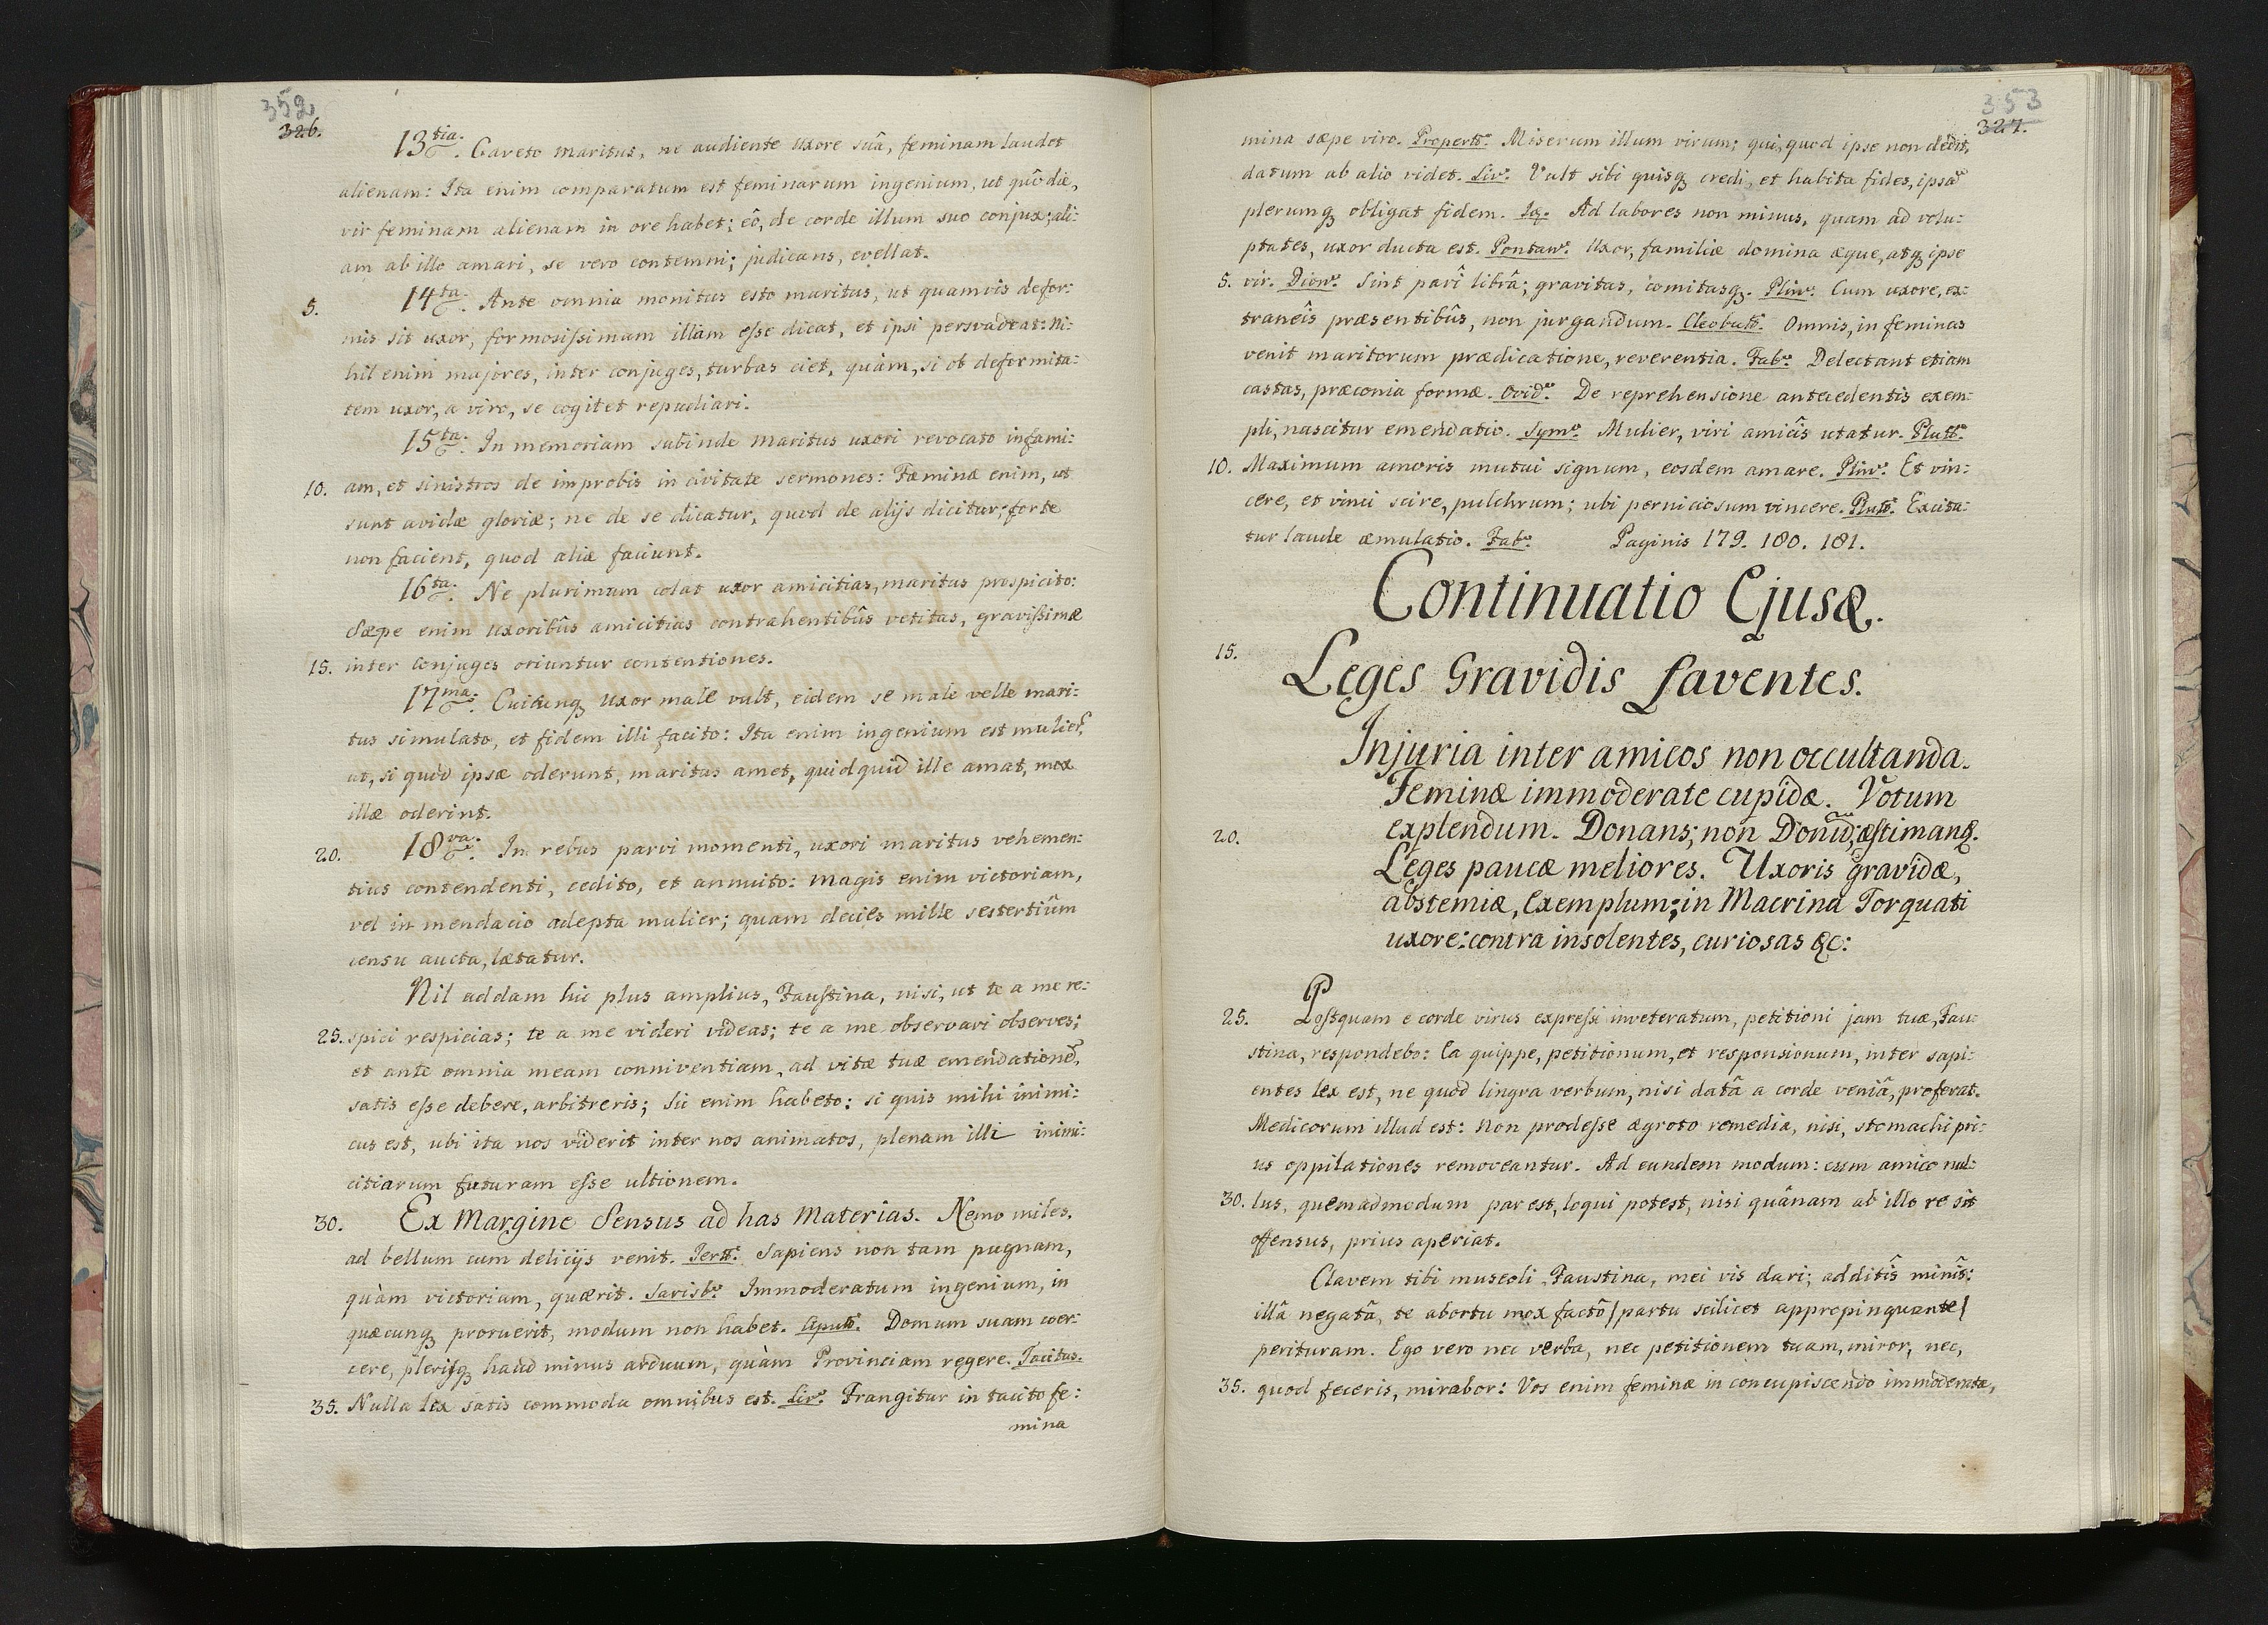 352
326.
13tia. Caveto maritus, ne audiente uxore suâ, feminam laudet
alienam: Ita enim comparatum est feminarum ingenium, ut quô die,
vir feminam alienam in ore habet; eô, de corde illum suo conjux; ali:
am ab illo amari, se vero contemni; judicans, evellat.
5. 14ta. Ante omnia monitus esto maritus, ut quamvis defor:
mis sit uxor, formosissimam illam esse dicat, et ipsi persvadeat: Ni:
hil enim majores, inter conjuges, turbas ciet, quàm, si ob deformita:
tem uxor, a viro, se cogitet repudiari.
15ta. In memoriam subinde maritus uxori revocato infami:
10. am, et sinistros de improbis in civitate sermones: Fæminæ enim, ut
sunt avidæ gloriæ; ne de se dicatur, quod de alijs dicitur; forte
non facient, quod aliæ faciunt.
16ta. Ne plurimum colat uxor amicitias, maritus prospicito:
Sæpe enim uxoribûs amicitias contrahentibûs vetitas, gravissimæ
15. inter conjuges oriuntur contentiones.
17ma. Cuicunq uxor male vult, eidem se male velle mari:
tus simulato, et fidem illi facito: Ita enim ingenium est mulier,
ut, si quid ipsæ oderunt, maritus amet, quidquid ille amat, mox
illæ oderint.
20. 18va. In rebus parvi momenti, uxori maritus vehemen:
tius contendenti, cedito, et annuito: magis enim victoriam,
vel in mendacio adepta mulier; quam decies mille sestertiûm
censu aucta, lætatur.
Nil addam hic plus amplius, Faustina, nisi, ut te a me re:
25. spici respicias; te a me videri videas; te a me observari observes;
et ante omnia meam conniventiam, ad vitæ tuæ emendationẽ,
satis esse debere, arbitreris; Sic enim habeto: si quis mihi inimi:
cus est, ubi ita nos viderit inter nos animatos, plenam illi inimi:
citiarum futuram esse ultionem.
30. Ex Margine Sensus ad has Materias. Nemo miles,
ad bellum cum delicijs venit. Tertt: Sapiens non tam pugnam,
quàm victoriam, quærit. Sarisb: Immoderatum ingenium, in
quæcunq proruerit, modum non habet. Apull: Domum suam coer:
cere, plerisq haud minus arduum, quàm Provinciam regere. Tacitus.
35. Nulla lex satis commoda omnibus est. Liv: Frangitur in tacito fe:
mina
353
327.
mina sæpe viro. Propertt: Miserum illum virum; qui, quod ipse non dedit,
datum ab alio videt. Liv: Vult sibi quisq credi, et habita fides, ipsã
plerumq obligat fidem. Iq. Ad labores non minus, quam ad volu:
ptates, uxor ducta est. Pontan: Uxor, familiæ domina æque, atq ipse
5. vir. Dion: Sint parî librâ; gravitas, comitasq. Plin: Cum uxore, ex:
traneîs præsentibûs, non jurgandum. Cleobutt: Omnis, in feminas
venit maritorum prædicatione, reverentia. Fab: Delectant etiam
castas, præconia formæ. Ovid: De reprehensione antecedentis exem:
pli, nascitur emendatio. Sym: Mulier, viri amicîs utatur. Plutt:
10. Maximum amoris mutui signum, eosdem amare. Plin: Et vin:
cere, et vinci scire, pulchrum; ubi perniciosum vincere. Plutt: Excita:
tur laude æmulatio. Fab: Paginis 179. 180. 181.
Continuatio Ejusd.
15. Leges Gravidis faventes.
Injuria inter amicos non occultanda.
Feminæ immoderate cupidæ. Votum
20. explendum. Donans; non Donũ; æstimand.
Leges paucæ meliores. Uxoris gravidæ,
abstemiæ, Exemplum; in Macrina Torquati
uxore: contra insolentes, curiosas &c:
25. Postquam e corde virus expressi inveteratum, petitioni jam tuæ, Fau:
stina, respondebo: Ea quippe, petitionum, et responsionum, inter sapi:
entes lex est, ne quod lingra verbum, nisi datâ a corde veniâ, proferat.
Medicorum illud est: Non prodesse ægroto remedia, nisi, stomachi pri:
us oppilationes removeantur. Ad eundem modum: cum amico nul:
30. lus, quemadmodum par est, loqui potest, nisi quânam ab illo re sit
offensus, prius aperiat.
Clavem tibi museoli, Faustina, mei vis dari; additîs minîs:
illâ negatâ, te abortu mox factô/ partu scilicet appropinquante/
perituram. Ego vero nec verba, nec petitionem tuam, miror, nec,
35. quod feceris, mirabor: Vos enim feminæ in concupiscendo immoderatæ,